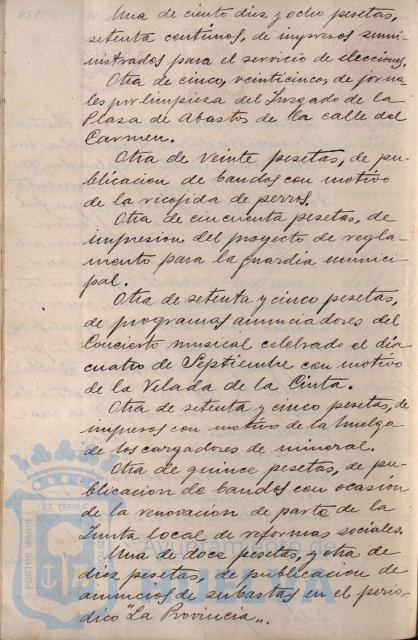 Una de ciento diez y ocho pesetas,
setenta centimos, de impresos sumi-
nistrados para el servicio de elecciones.
Otra de cinco, veinticinco, de jorna-
les por limpieza del Juzgado de la
Plaza de Abastos de la calle del
Carmen.
Otra de veinte pesetas, de pu-
blicacion de bandos con motivo
de la recojida de perros.
Otra de cincuenta pesetas, de
impresion del proyecto de regla-
mento para la guardia munici-
pal.
Otra de setenta y cinco pesetas,
de programas anunciadores del
Concierto musical celebrado el dia
cuatro de Septiembre con motivo
de la Velada de la Cinta.
Otra de setenta y cinco pesetas, de
impresos con motivo de la huelga
de los cargadores de mineral.
Otra de quince pesetas, de pu-
blicacion de bandos con ocasion
de la renovacion de parte de la
Junta local de reformas sociales.
Una de doce pesetas, y otra de
diez pesetas, de publicacion de
anuncios de subastas en el perio-
dico "La Provincia".
PORTUS MARIS ET TERRAE
Ayuntamiento de
HUELVA